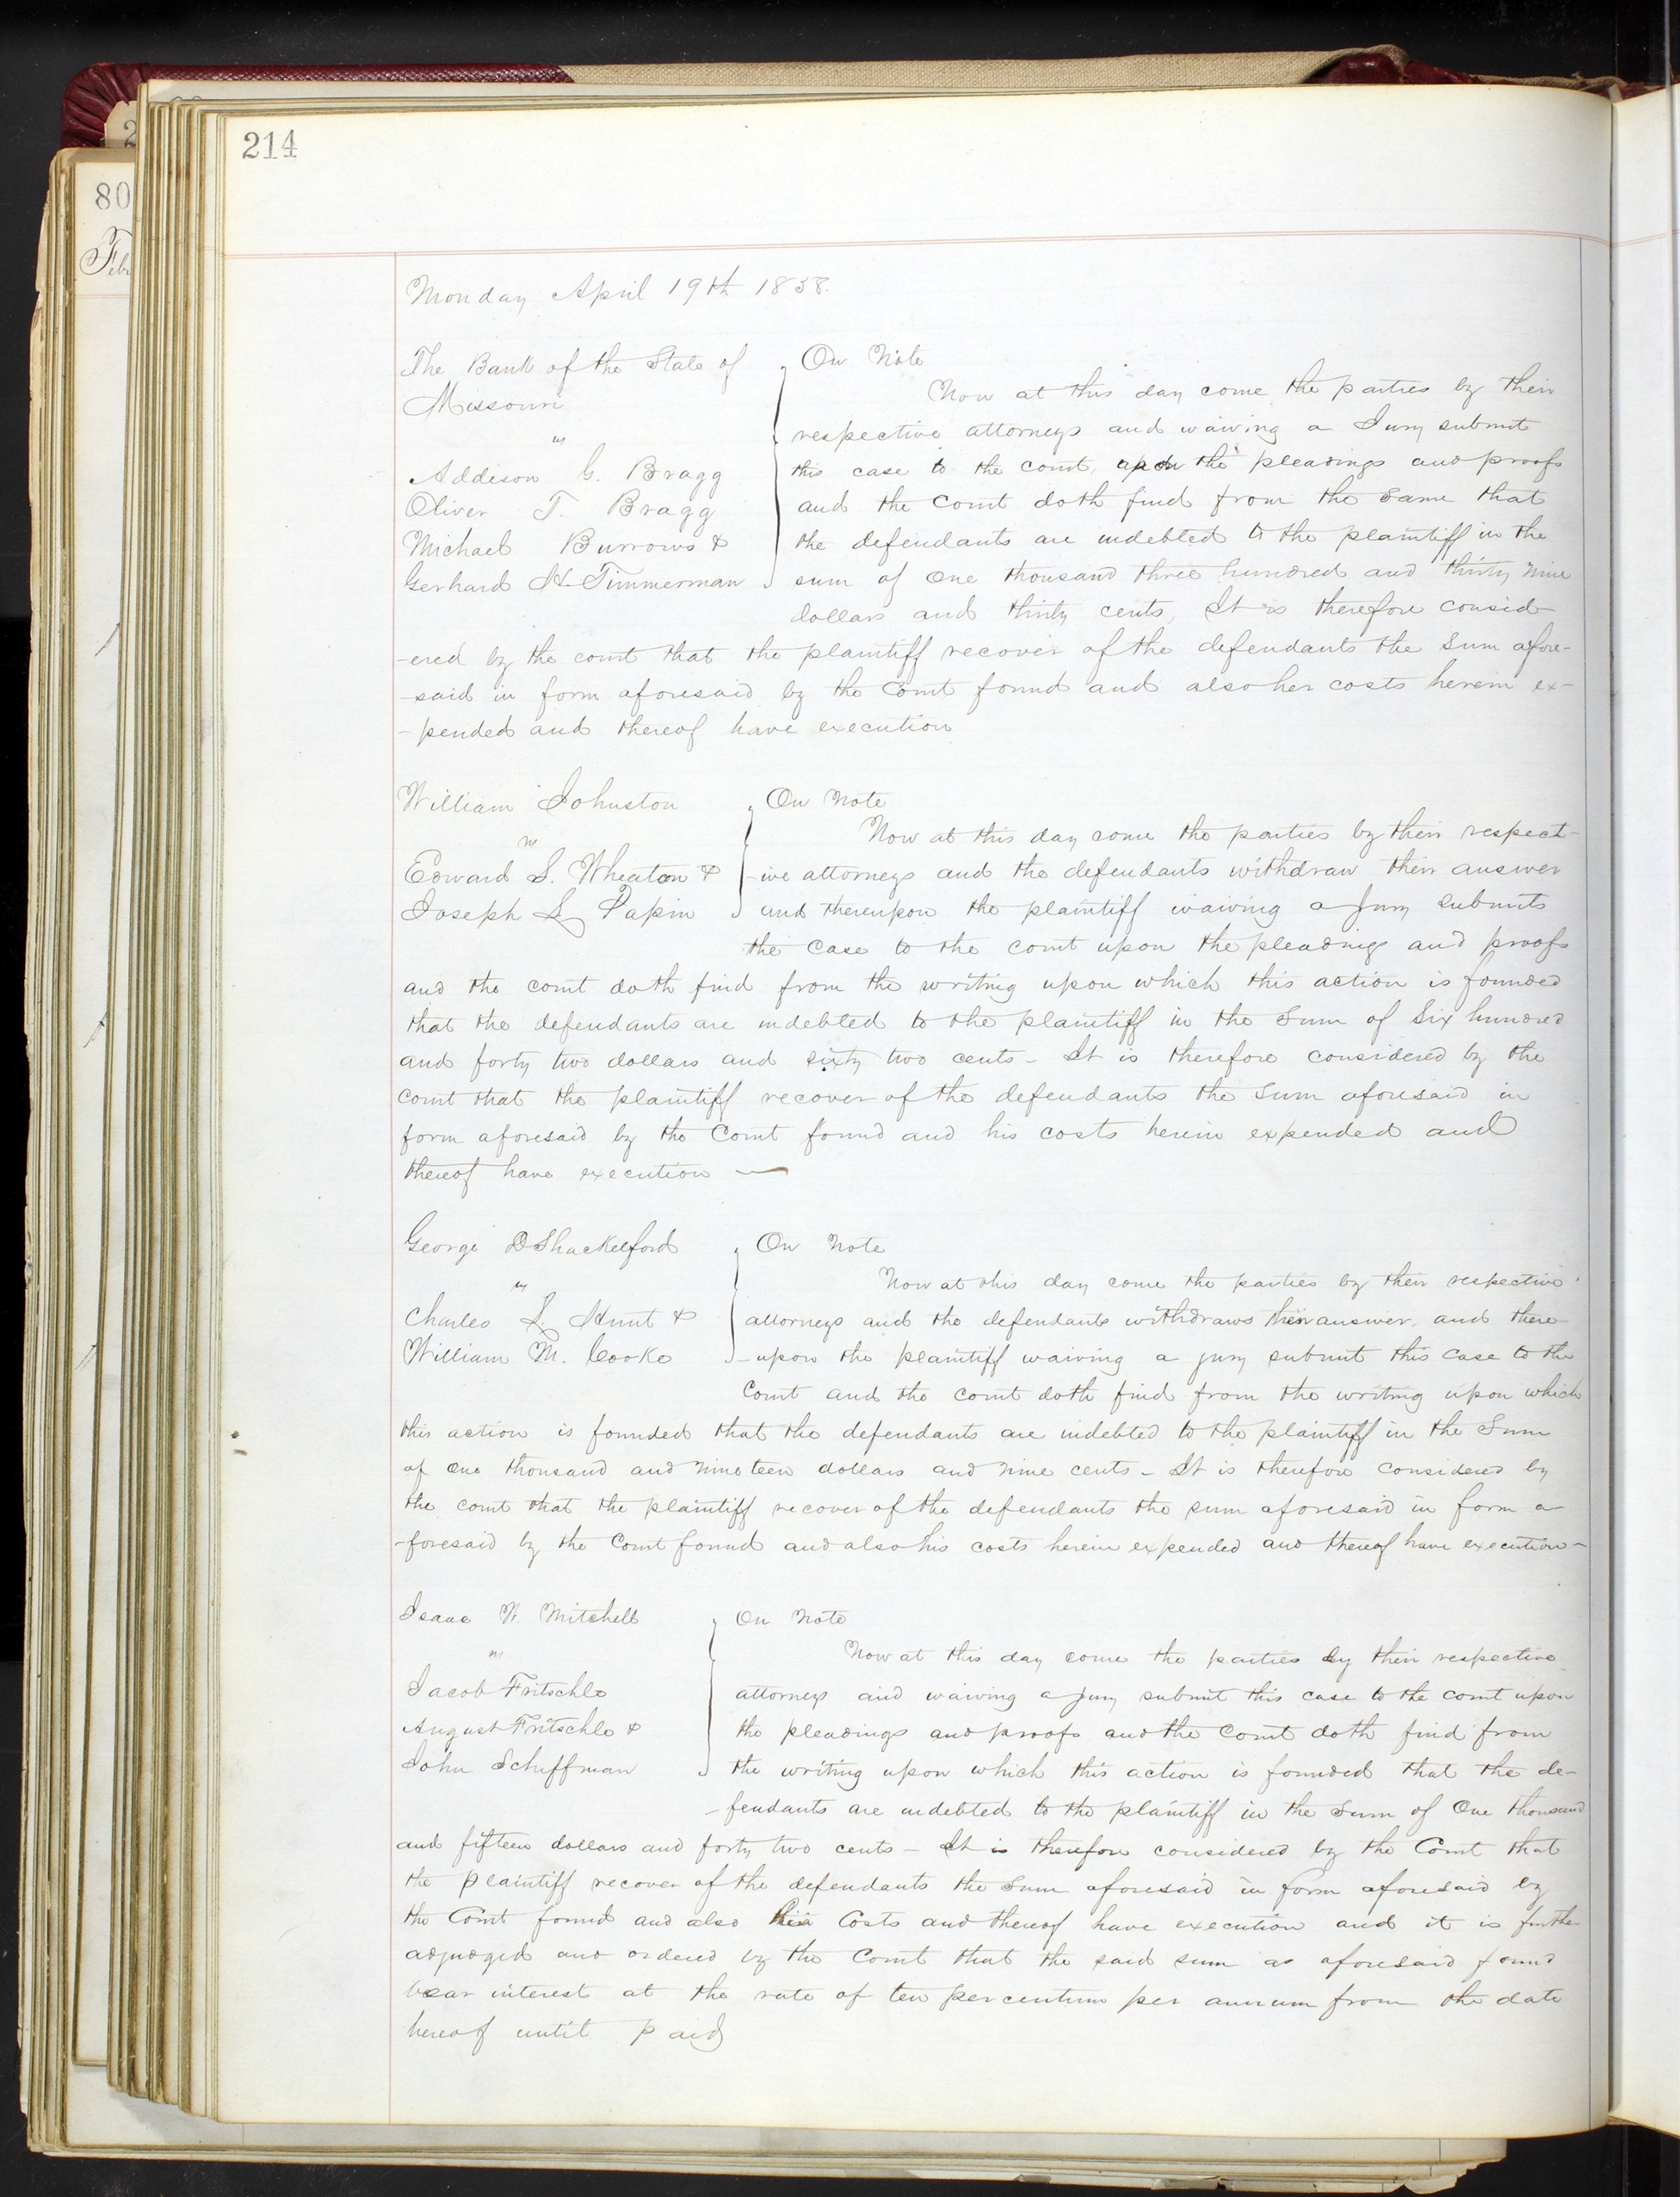 214
80
Feb
Monday April 19th 1858.
The Bank of the State of
Missouri
vs
Addison G. Bragg
Oliver T. Bragg
Michael Burrows &
Gerhard H Timmerman
On Note
Now at this day come the parties by their
respective attorneys and waiving a Jury submit
this case to the court, upon the pleadings and proofs
and the court doth find from the same that
the defendants are indebted to the plaintiff in the
sum of One thousand three hundred and thirty nine
dollars and thirty cents, It is therefore consid-
-ered by the court that the plaintiff recover of the defendants the sum afore-
-said in form aforesaid by the Court found and also her costs herein ex-
-pended and thereof have execution
William Johnston
vs
Edward S. Wheaton &
Joseph L Papin
On Note
Now at this day come the parties by their respect-
-ive attorneys and the defendants withdraw their answer
and thereupon the plaintiff waiving a Jury submits
the case to the court upon the pleadings and proofs
and the court doth find from the writing upon which this action is founded
that the defendants are indebted to the plaintiff in the sum of Six hundred
and forty two dollars and sixty two cents - It is therefore considered by the
Court that the plaintiff recover of the defendants the sum aforesaid in
form aforesaid by the Court found and his costs herein expended and
thereof have execution —
George D Shackelford
vs
Charles L. Hunt &
William M. Cooke
On Note
Now at this day come the parties by their respective
attorneys and the defendants withdraws their answer, and there-
-upon the plaintiff waiving a jury submit this case to the
Court and the court doth find from the writing upon which
this action is founded that the defendants are indebted to the plaintiff in the Sum
of one thousand and nineteen dollars and nine cents - It is therefore considered by
the court that the plaintiff recover of the defendants the sum aforesaid in form a-
-foresaid by the Court found and also his costs herein expended and thereof have execution -
Isaac W. Mitchell
vs
Jacob Fritschle
August Fritschle &
John Schiffman
On Note
Now at this day come the parties by their respective
attorneys and waiving a jury submit this case to the court upon
the pleadings and proofs and the Court doth find from
the writing upon which this action is founded that the de-
-fendants are indebted to the plaintiff in the Sum of One thousand
and fifteen dollars and forty two cents - It is therefore considered by the Court that
the plaintiff recover of the defendants the Sum aforesaid in form aforesaid by
the Court found and also his Costs and thereof have execution and it is further
adjudged and ordered by the Court that the said sum as aforesaid found
bear interest at the rate of ten per centum per annum from the date
hereof until paid